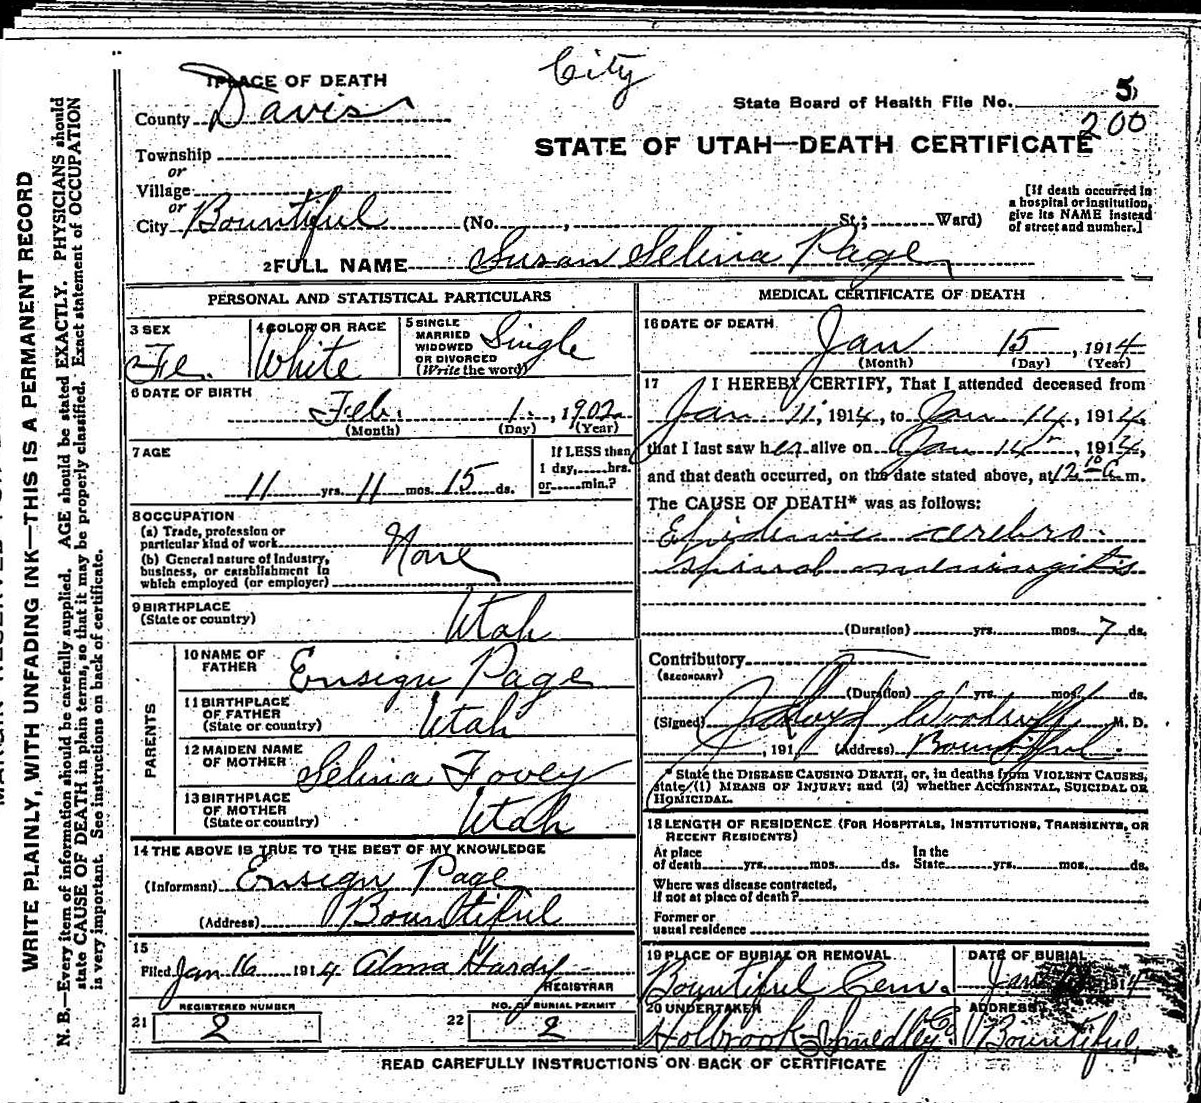 City
1 PLACE OF DEATH
County Davis
State Board of Health File No. 5
200
Township
or
Village
or
City Bountiful (No. , St.; Ward)
STATE OF UTAH—DEATH CERTIFICATE
[If death occurred in
a hospital or institution,
give its NAME instead
of street and number.]
2 FULL NAME Susan Selina Page
PERSONAL AND STATISTICAL PARTICULARS
3 SEX
Fe.
4 COLOR OR RACE
White
5 SINGLE
MARRIED
WIDOWED
OR DIVORCED
(Write the word)
Single
6 DATE OF BIRTH
Feb. 1, 1902
(Month) (Day) (Year)
7 AGE
11 yrs. 11 mos. 15 ds.
If LESS than
1 day, hrs.
or min.?
8 OCCUPATION
(a) Trade, profession or
particular kind of work
(b) General nature of industry,
business, or establishment in
which employed (or employer)
None
9 BIRTHPLACE
(State or country)
Utah
PARENTS
10 NAME OF
FATHER
Ensign Page
11 BIRTHPLACE
OF FATHER
(State or country)
Utah
12 MAIDEN NAME
OF MOTHER
Selina Tovey
13 BIRTHPLACE
OF MOTHER
(State or country)
Utah
14 THE ABOVE IS TRUE TO THE BEST OF MY KNOWLEDGE
(Informant) Ensign Page
(Address) Bountiful
15
Filed Jan 16 1914 Alma Hardy
REGISTRAR
REGISTERED NUMBER
21 2
NO. OF BURIAL PERMIT
22 2
MEDICAL CERTIFICATE OF DEATH
16 DATE OF DEATH
Jan 15, 1914
(Month) (Day) (Year)
17 I HEREBY CERTIFY, That I attended deceased from
Jan 11, 1914, to Jan 14, 1914,
that I last saw her alive on Jan 14, 1914,
and that death occurred, on the date stated above, at 12 10 a m.
The CAUSE OF DEATH* was as follows:
Epidemic cerebro
spinal meningitis
(Duration) yrs. mos. 7 ds.
Contributory
(SECONDARY)
(Duration) yrs. mos. ds.
(Signed) Woodruff M. D.
, 191 (Address) Bountiful.
* State the DISEASE CAUSING DEATH, or, in deaths from VIOLENT CAUSES,
state (1) MEANS OF INJURY; and (2) whether ACCIDENTAL, SUICIDAL OR
HOMICIDAL.
18 LENGTH OF RESIDENCE (FOR HOSPITALS, INSTITUTIONS, TRANSIENTS, OR
RECENT RESIDENTS)
At place
of death yrs. mos. ds.
In the
State yrs. mos. ds.
Where was disease contracted,
if not at place of death?
Former or
usual residence
19 PLACE OF BURIAL OR REMOVAL
Bountiful Cem.
DATE OF BURIAL
Jan 1914
20 UNDERTAKER
Holbrook Smedley Co
ADDRESS
Bountiful
READ CAREFULLY INSTRUCTIONS ON BACK OF CERTIFICATE
WRITE PLAINLY, WITH UNFADING INK—THIS IS A PERMANENT RECORD
N. B.—Every item of information should be carefully supplied. AGE should be stated EXACTLY. PHYSICIANS should
state CAUSE OF DEATH in plain terms, so that it may be properly classified. Exact statement of OCCUPATION
is very important. See instructions on back of certificate.